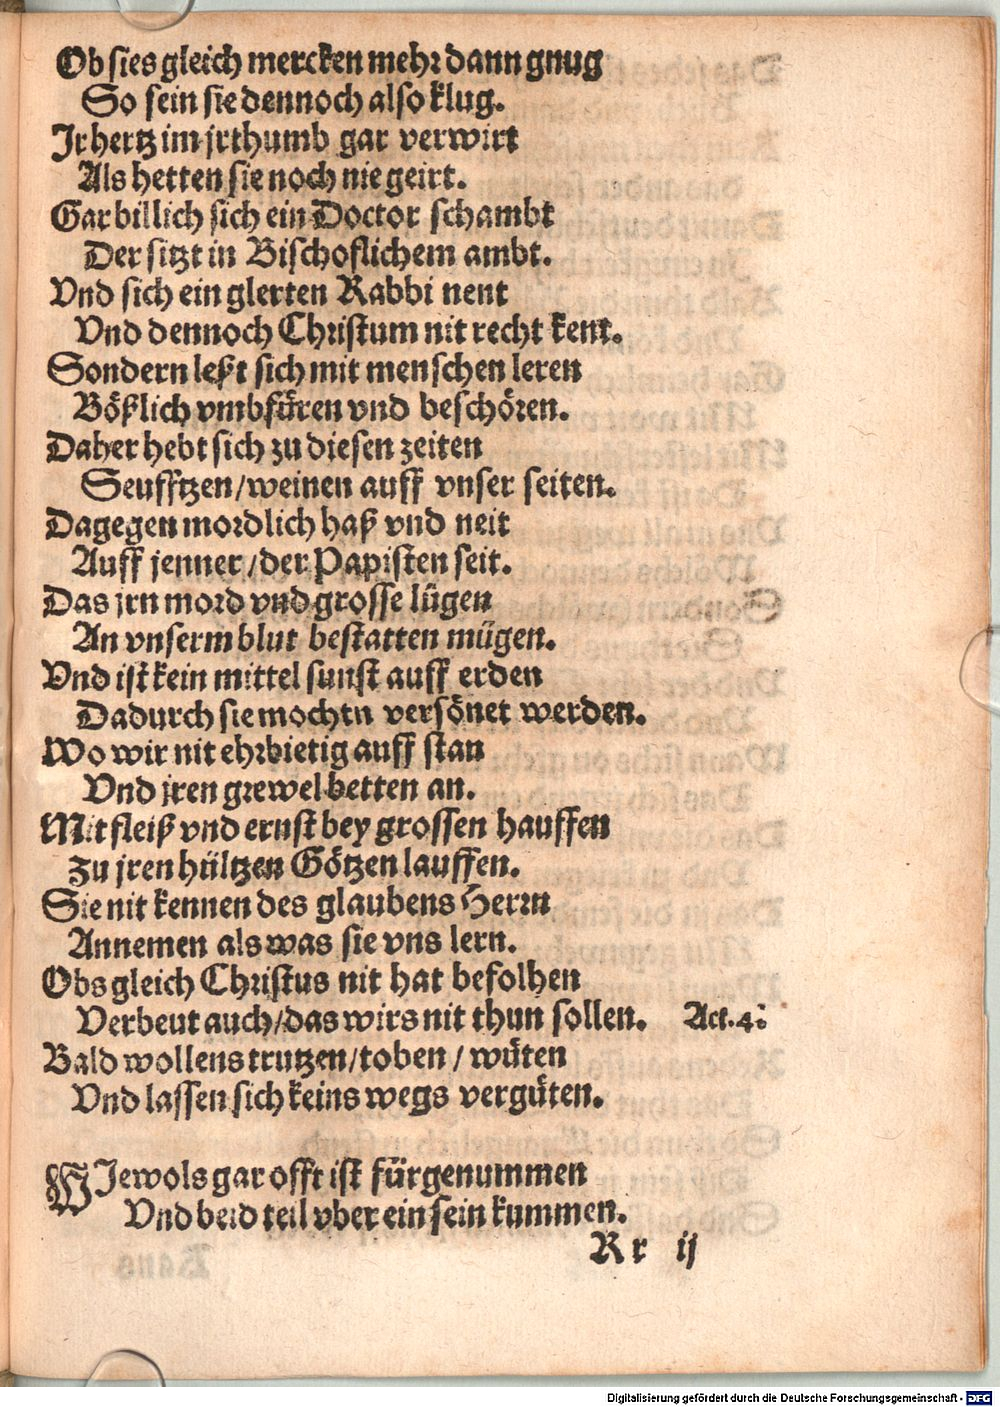 Ob sies gleich mercken mehr dann gnug
So sein sie dennoch also klug.
Ir hertz im jrthumb gar verwirt
Als hetten sie noch nie geirt.
Gar billich sich ein Doctor schambt
Der sitzt in Bischoflichem ambt.
Vnd sich ein glerten Rabbi nent
Vnd dennoch Christum nit recht kent.
Sondern leßt sich mit menschen leren
Bößlich vmbfüren vnd beschören.
Daher hebt sich zu diesen zeiten
Seufftzen/weinen auff vnser seiten.
Dagegen mordlich haß vnd neit
Auff jenner/der Papisten seit.
Das jrn mord vnd grosse lügen
An vnserm blut bestatten mügen.
Vnd ist kein mittel sunst auff erden
Dadurch sie mochtn versönet werden.
Wo wir nit ehrbietig auff stan
Vnd jren grewel betten an.
Mit fleiß vnd ernst bey grossen hauffen
Zu jren hültzen Götzen lauffen.
Sie nit kennen des glaubens Herrn
Annemen als was sie vns lern.
Obs gleich Christus nit hat befolhen
Verbeut auch/das wirs nit thun sollen. Act. 4.
Bald wollens trutzen/toben/wüten
Vnd lassen sich keins wegs vergüten.
WJewols gar offt ist fürgenummen
Vnd beid teil vber ein sein kummen.
Rr ij
Digitalisierung gefördert durch die Deutsche Forschungsgemeinschaft - DFG